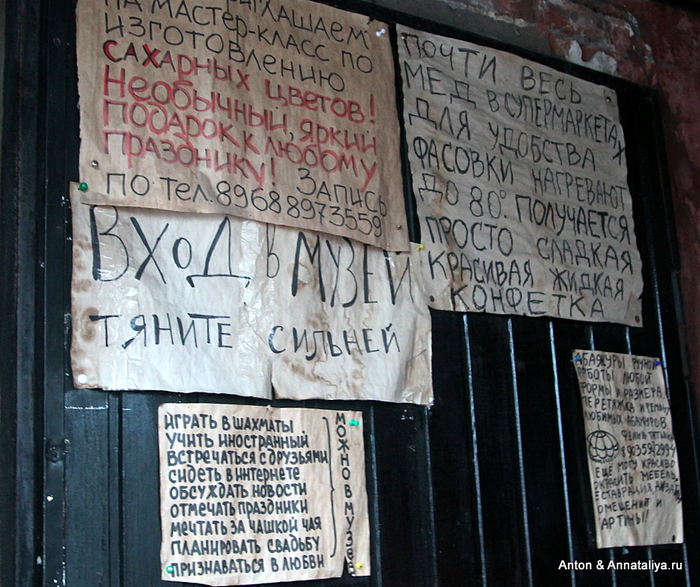 НА МАСТЕР-КЛАСС ПО
ИЗГОТОВЛЕНИЮ
САХАРНЫХ ЦВЕТОВ!
НЕОБЫЧНЫЙ, ЯРКИЙ
ПОДАРОК К ЛЮБОМУ
ПРАЗДНИКУ! ЗАПИСЬ
ПО ТЕЛ. 8968 8973559
ПОЧТИ ВЕСЬ
МЕД В СУПЕРМАРКЕТАХ
ДЛЯ УДОБСТВА
ФАСОВКИ НАГРЕВАЮТ
ДО 80°. ПОЛУЧАЕТСЯ
ПРОСТО СЛАДКАЯ
КРАСИВАЯ ЖИДКАЯ
КОНФЕТКА
ВХОД В МУЗЕЙ
ТЯНИТЕ СИЛЬНЕЙ
ИГРАТЬ В ШАХМАТЫ
УЧИТЬ ИНОСТРАННЫЙ
ВСТРЕЧАТЬСЯ С ДРУЗЬЯМИ
СИДЕТЬ В ИНТЕРНЕТЕ
ОБСУЖДАТЬ НОВОСТИ
ОТМЕЧАТЬ ПРАЗДНИКИ
МЕЧТАТЬ ЗА ЧАШКОЙ ЧАЯ
ПЛАНИРОВАТЬ СВАДЬБУ
ПРИЗНАВАТЬСЯ В ЛЮБВИ
МОЖНО В МУЗЕЕ
АБАЖУРЫ РУЧНОЙ
РАБОТЫ ЛЮБОЙ
ФОРМЫ И РАЗМЕРА.
ПЕРЕТЯЖКА И РЕМОНТ
ЛЮБИМЫХ АБАЖУРОВ
ЕЩЕ МОГУ КРАСИВО
МЕБЕЛЬ
Anton & Annataliya.ru